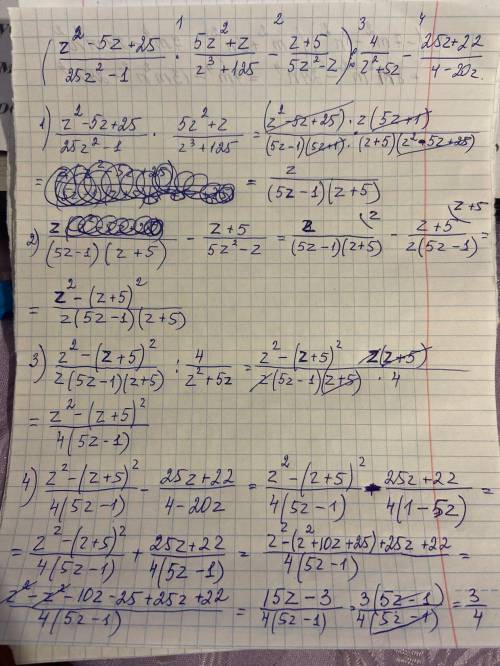 1 2 3 4
( (z² - 5z + 25)/(25z² - 1) · (5z² + z)/(z³ + 125) - (z + 5)/(5z² - z) ) : 4/(z² + 5z) - (25z + 22)/(4 - 20z)
1) (z² - 5z + 25)/(25z² - 1) · (5z² + z)/(z³ + 125) = (z² - 5z + 25) · z(5z + 1)/((5z - 1)(5z + 1) · (z + 5)(z² - 5z + 25))
= = z/((5z - 1)(z + 5))
2) z/((5z - 1)(z + 5)) - (z + 5)/(5z² - z) = z/((5z - 1)(z + 5)) (z - (z + 5)/(z(5z - 1)) (z + 5 =
= (z² - (z + 5)²)/(z(5z - 1)(z + 5))
3) (z² - (z + 5)²)/(z(5z - 1)(z + 5)) : 4/(z² + 5z) = (z² - (z + 5)² z(z + 5))/(z(5z - 1)(z + 5) · 4)
= (z² - (z + 5)²)/(4(5z - 1))
4) (z² - (z + 5)²)/(4(5z - 1)) - (25z + 22)/(4 - 20z) = (z² - (z + 5)²)/(4(5z - 1)) - (25z + 22)/(4(1 - 5z)) =
= (z² - (z + 5)²)/(4(5z - 1)) + (25z + 22)/(4(5z - 1)) = (z² - (z² + 10z + 25) + 25z + 22)/(4(5z - 1)) =
(z² - z² - 10z - 25 + 25z + 22)/(4(5z - 1)) = (15z - 3)/(4(5z - 1)) = 3(5z - 1)/(4(5z - 1)) = 3/4